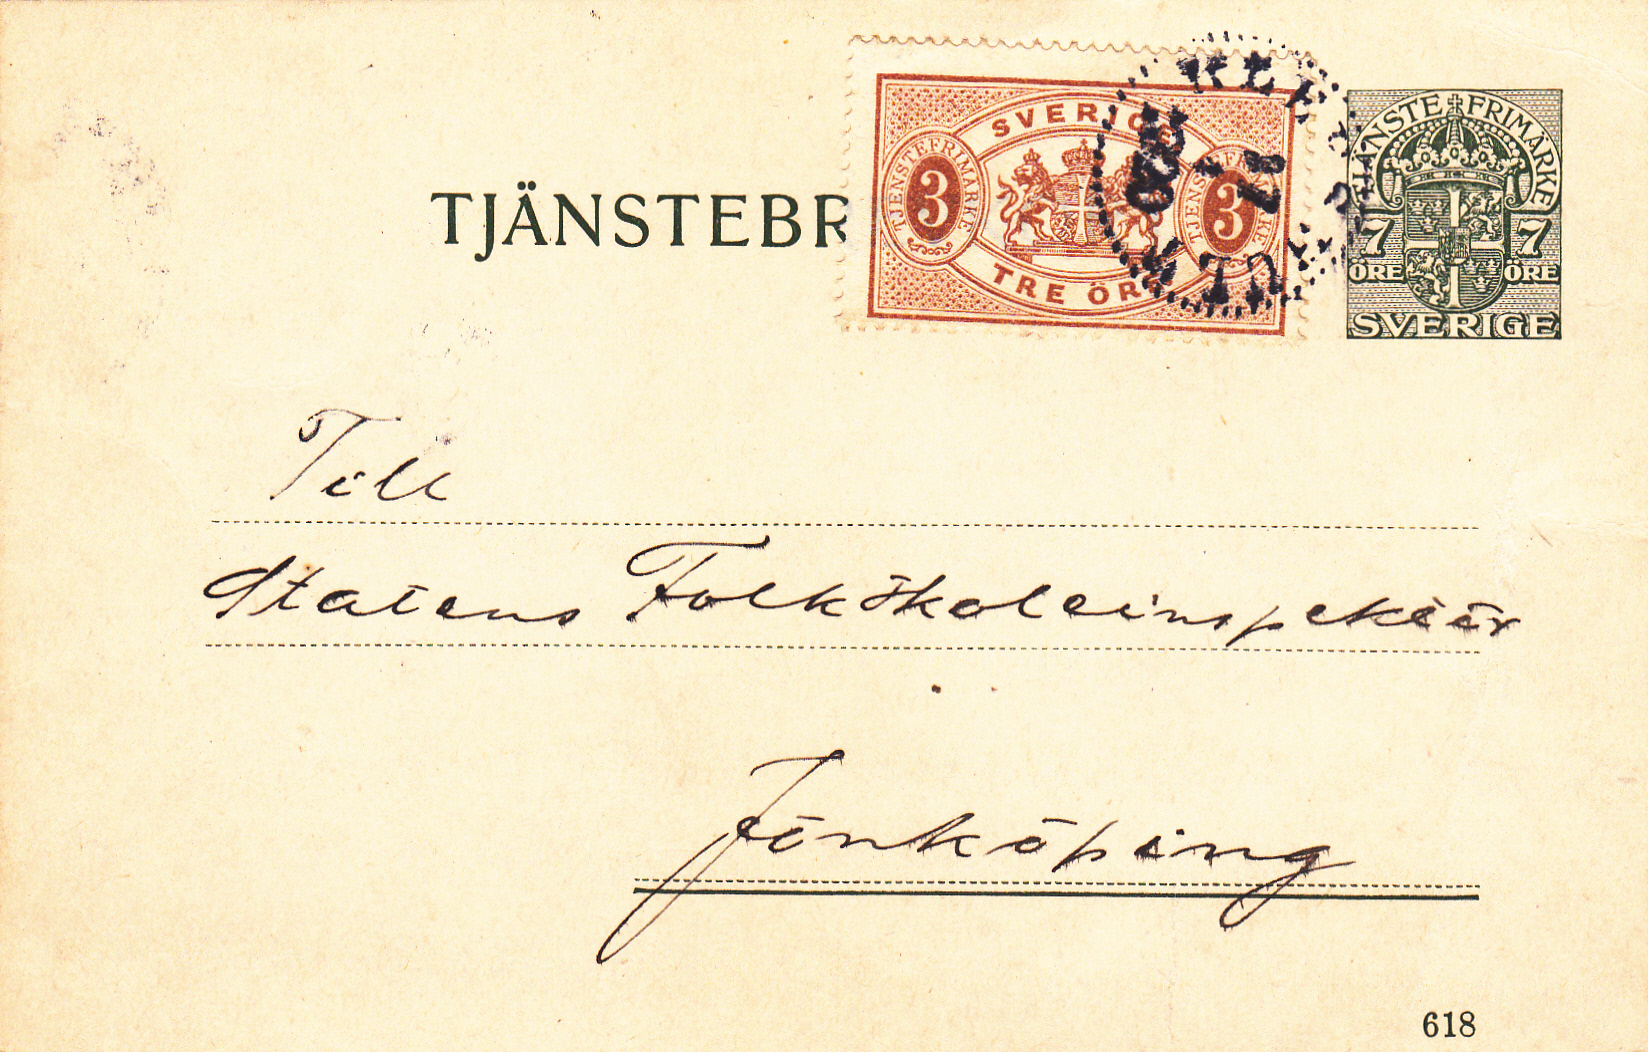 TJÄNSTEBR
SVERIGE
TJENSTEFRIMÄRKE
3
3
TRE ÖRE
TJÄNSTEFRIMÄRKE
7 7
ÖRE ÖRE
SVERIGE
Till
Statens Folkskoleinspektör
Jönköping
618